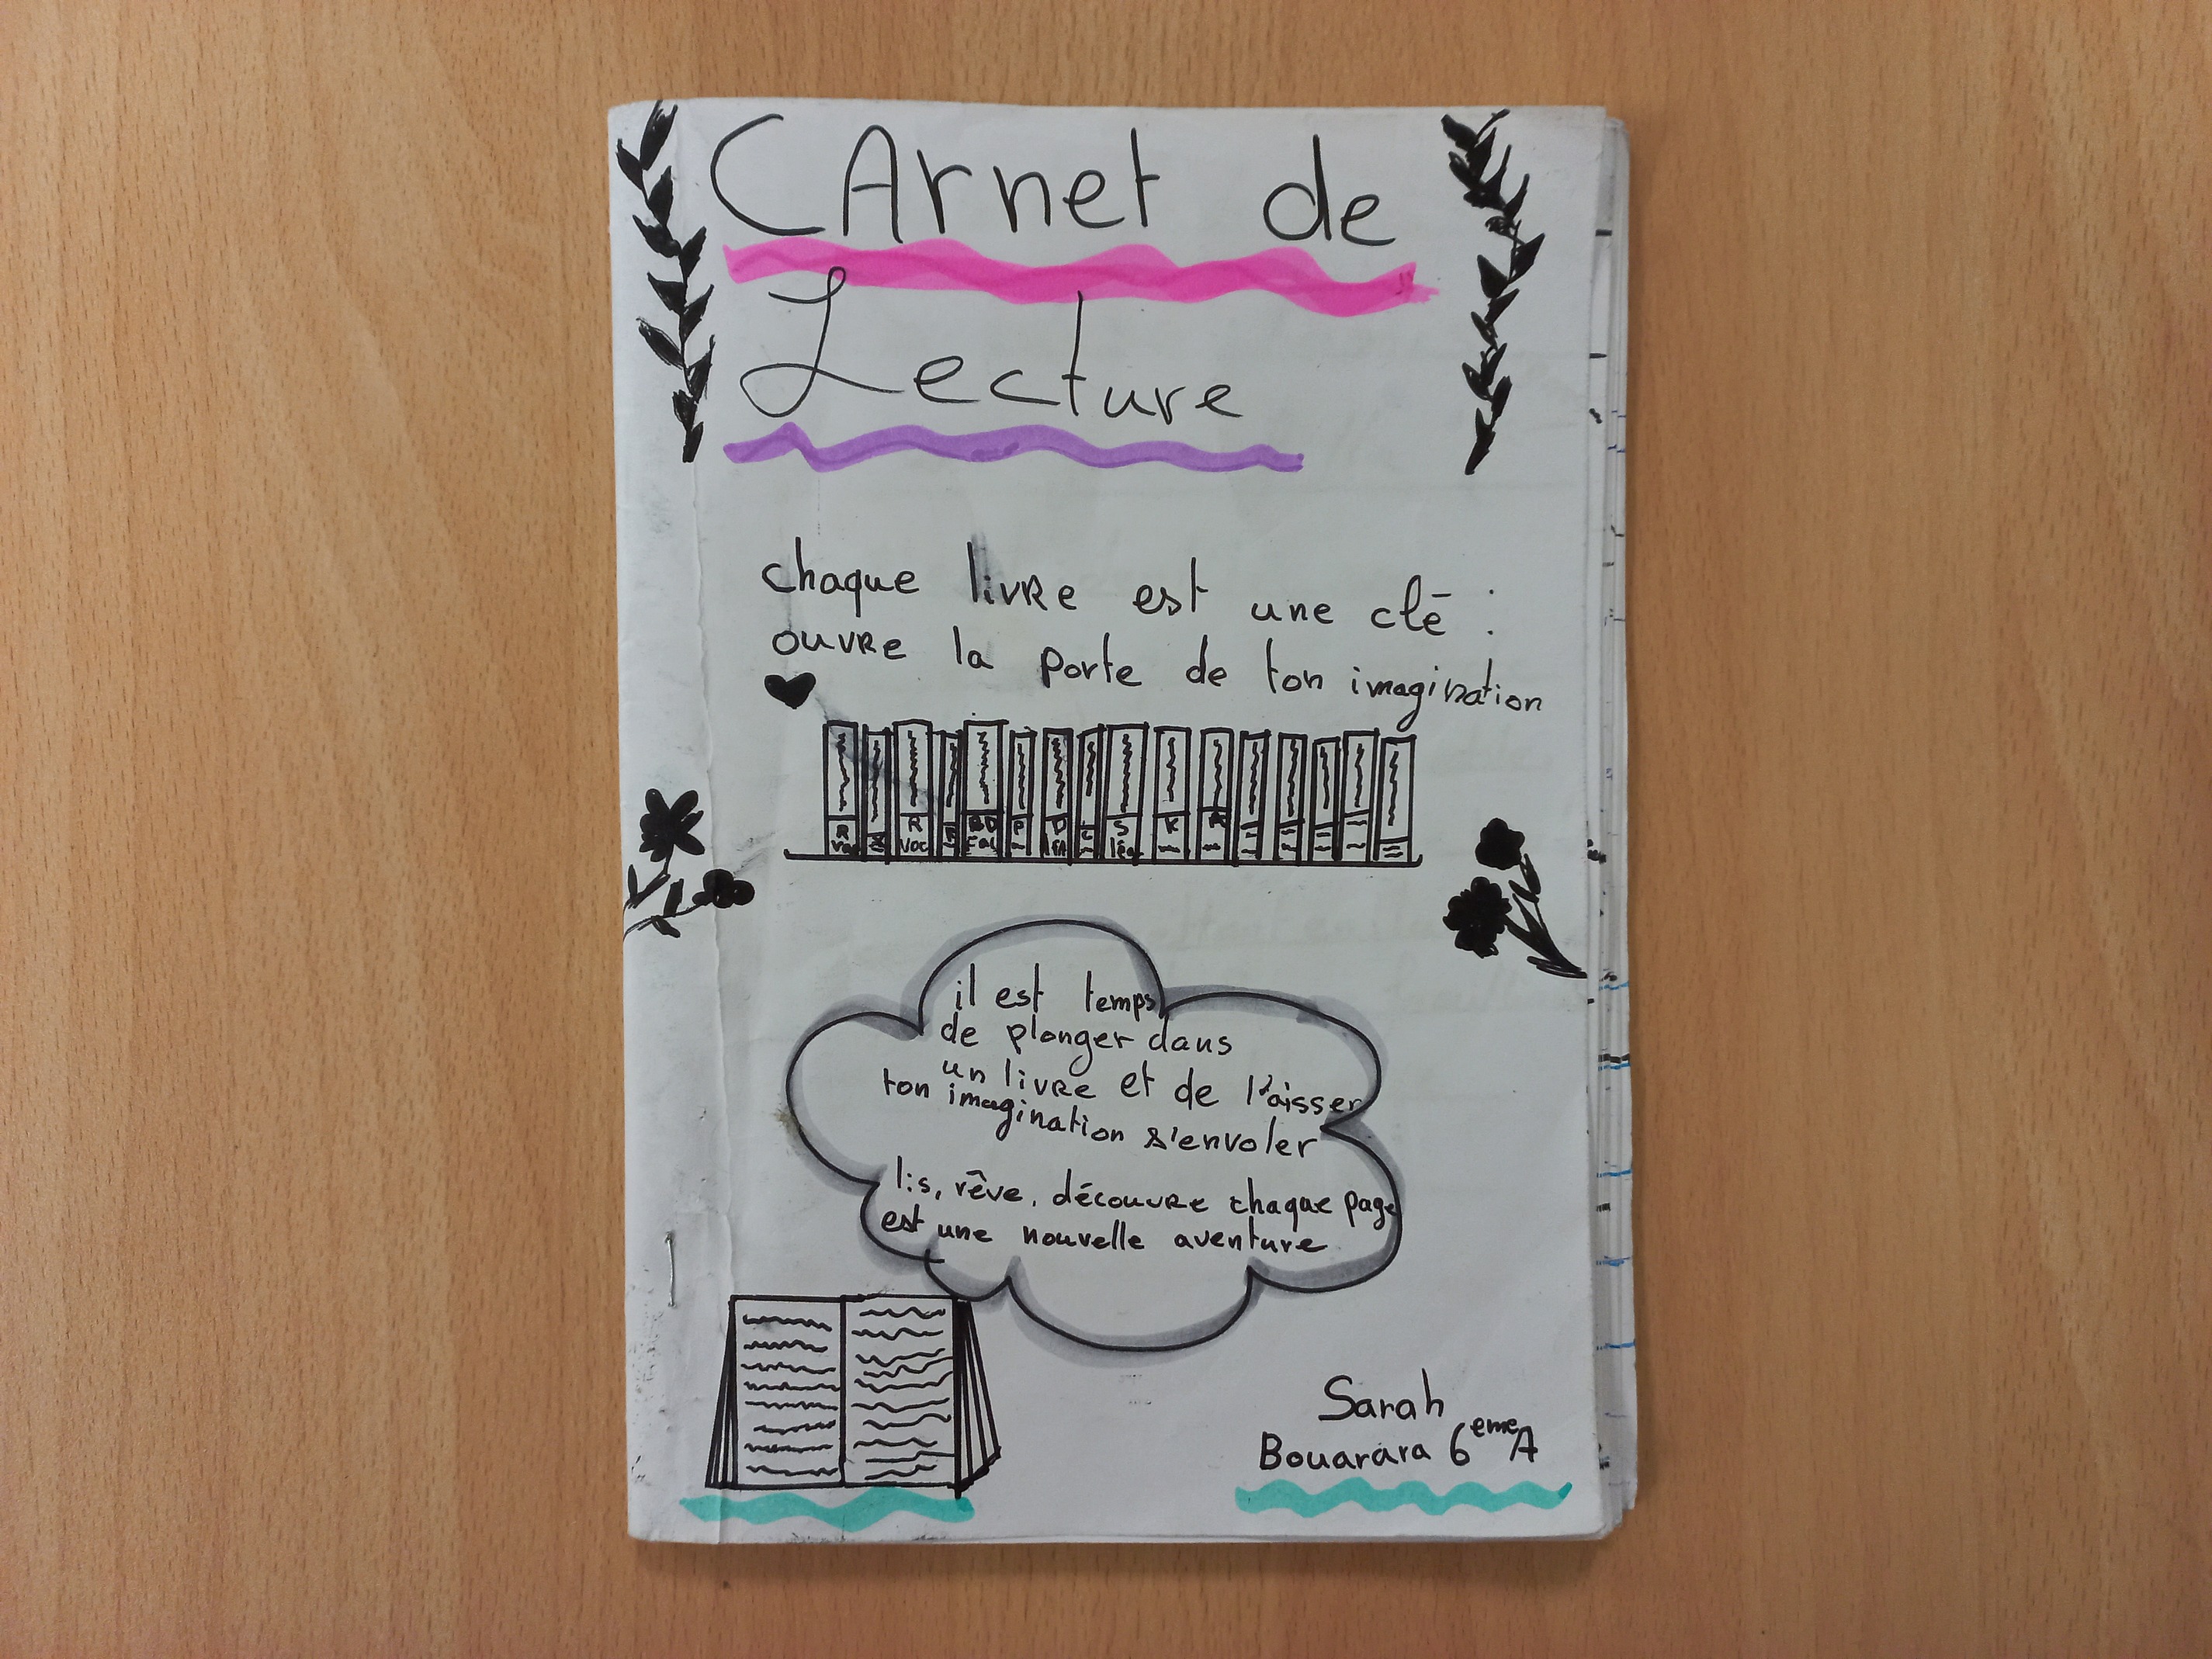 CArnet de
Lecture
chaque livre est une clé :
ouvre la porte de ton imagination
R R BD P D S K A
voc
il est temps
de plonger dans
un livre et de l'aisser
ton imagination s'envoler
lis, rêve, découvre chaque page
est une nouvelle aventure
Sarah
Bouarara 6eme A